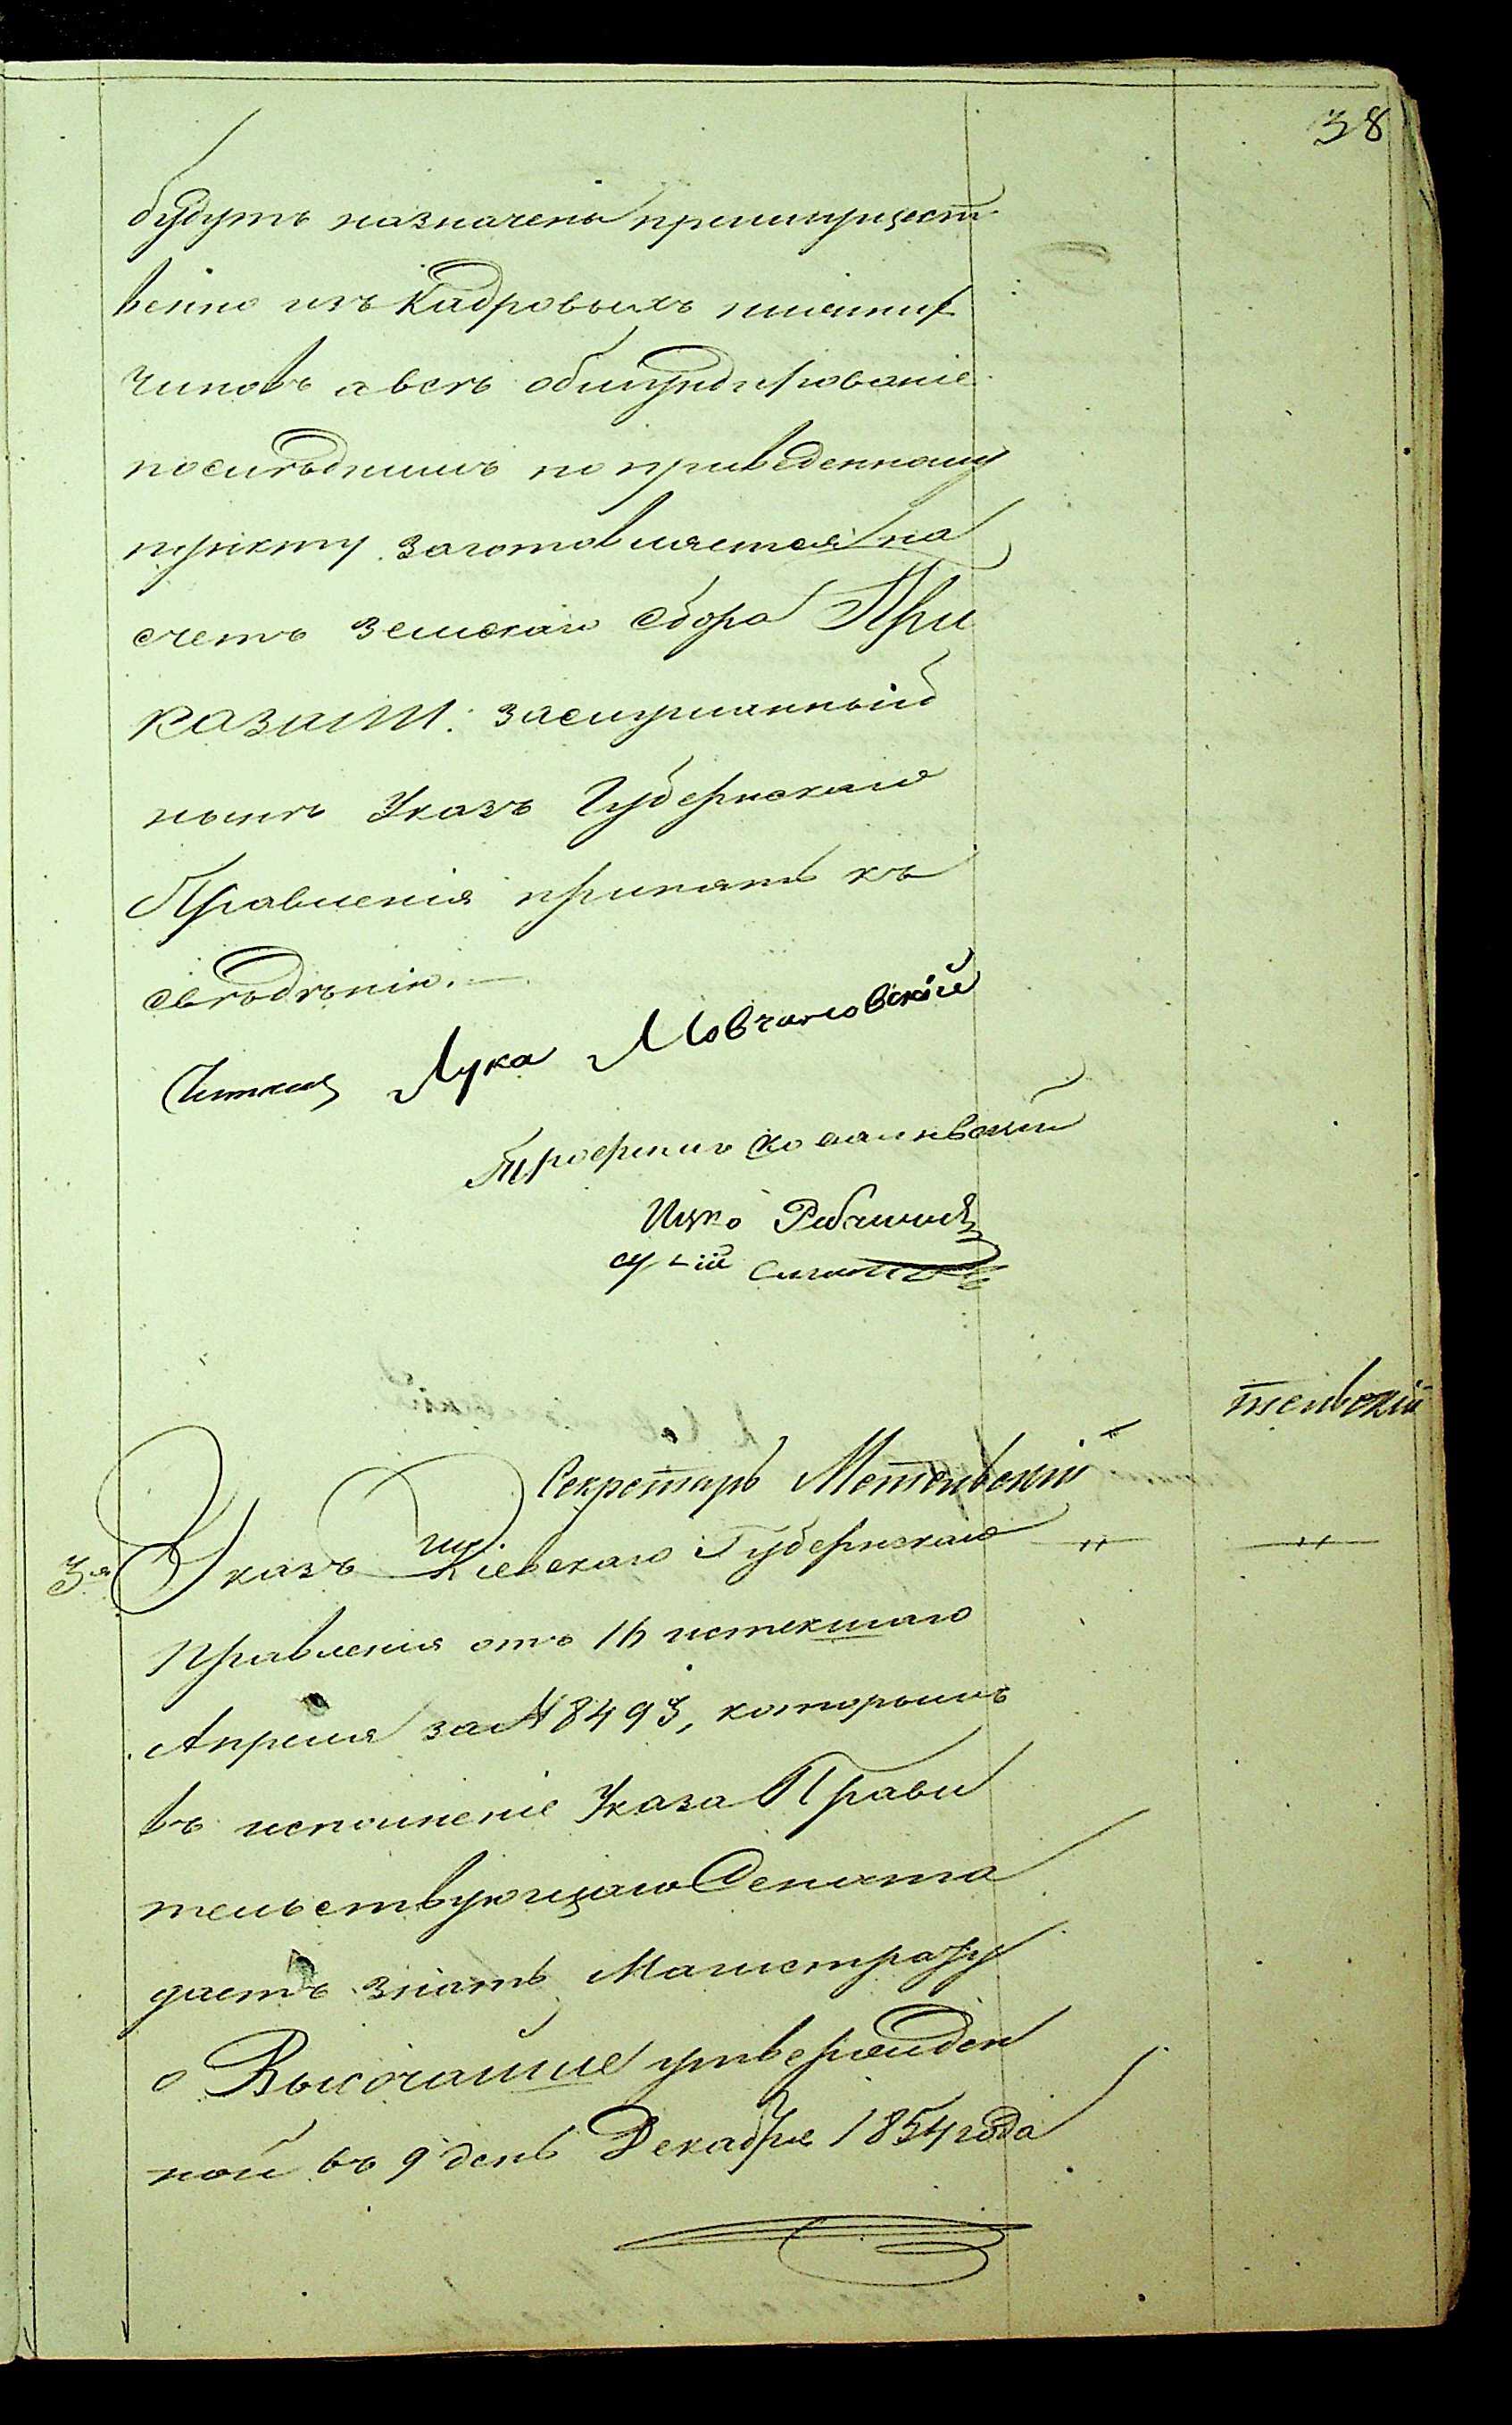 38
будутъ назначены преимущест
венно изъ Кадровыхъ нижних
чиновъ а всѣ обмундированіе
послѣднимъ по приведенному
пункту заготовляется на
счетъ земскаго сбора При
казали: заслушанный
нынѣ Указъ Губернскаго
Правленія принять къ
свѣдѣнію.—
Лука Мовчановскій
Ицко
Секретарь Метельскій
тельскій
3я Указъ Кіевскаго Губернскаго " "
Правленія отъ 16 истекшаго
Апреля за № 8493, которымъ
въ исполненіе Указа Прави
тельствующаго Сената
даетъ знать Магистрату
о Высочайше утвержден
ной въ 9 день Декабря 1854 года